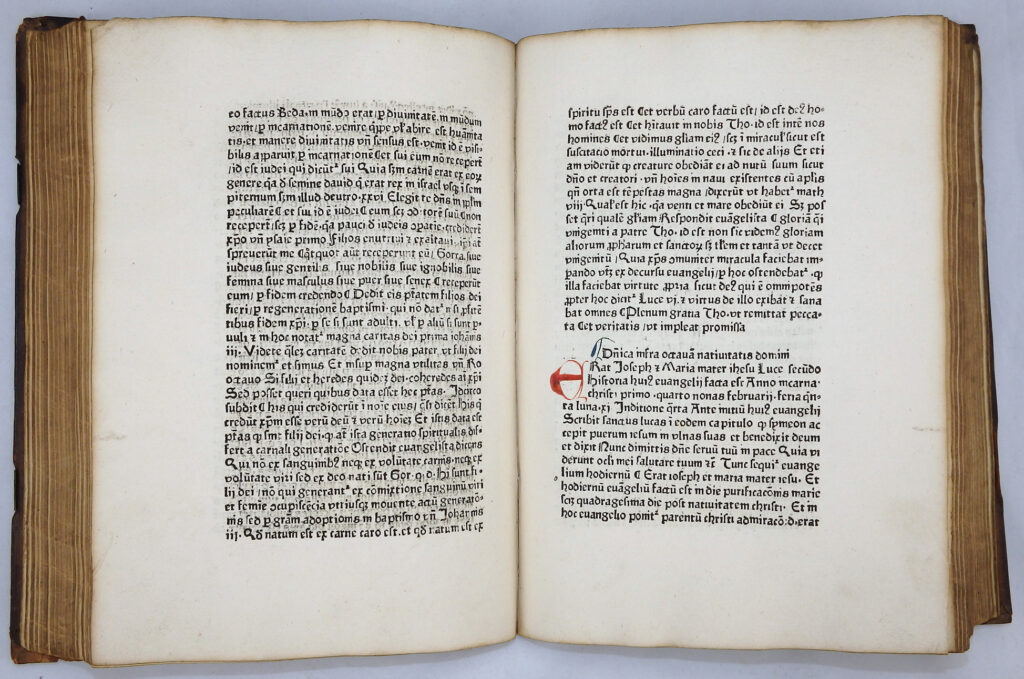 eo factus Beda. in mūdo erat ꝑ divinitatē. in mūdum
venit ꝑ incarnationē. venire qͥppe vl̕ abire est humāita
tis. et manere divinitatis vñ sensus est. venit id ē visi-
bilis apparuit ꝑ incarnationē Cet sui eum nō receperūt
/id est iudei qui dicūtᷣ sui Quia scd̓m carnē erat ex eoꝝ
genere qͣ d̓ semine david qͥ erat rex in israel vsqꝫ ī sem
piternum scd̓m illud deutro. xxvi. Elegit te dn̄s in ppl̓m
peculiarē C et sui id ē iudei C eum scꝫ
receperūt scꝫ ꝑ fidē. qͣ pauci d̓ iudeis crediderūt
xp̄o vñ ysaie primo Filios enutriui ⁊ exaltaui. ip̄i aūt
spreuerūt me Cqͣtquot aūt receperunt eū/ Gorra. siue
iudeus siue gentilis siue nobilis siue ignobilis siue
femina siue masculus siue puer siue senex C receperūt
eum/ ꝑ fidem credendo C Dedit eis ptātem filios dei
fieri/ ꝑ regenerationē baptismi. qui nō datᷣ nisi petē
tibus fidem xp̄i. ꝑ se si sunt adulti. vl̕ ꝑ aliū si sunt ꝑ-
uuli ⁊ in hoc notatᷣ magna caritas dei prima iohānis
iii. Videte qͣlē caritatē dedit nobis pater. vt filii dei
nominemᷣ et simus Et insuꝑ magna vtilitas vñ Ro
octauo Si filii et heredes quidē dei. coheredes aūt xp̄i
Sed posset queri quibus data esset hec ptās. Idcirco
subdit C his qui crediderūt ī noīe eius/ qͥst dicēt his qͥ
credūt xp̄m esse verū deū ⁊ verū hoīeꝫ Et istis data est
ptās qͥ sint filii dei. qͣ aūt ista generatio spiritualis dif-
fert a carnali generatiōe Ostendit euangelista dicens
Qui nō ex sanguinibꝰ neqꝫ ex volūtate carnis. neqꝫ ex
volūtate viri sed ex deo nati sūt Gor. q. d. Hi sunt fi-
lii dei/ nō qui generantᷣ ex cōmixtione sanguinū viri
et femīe ↄcupiscētia vtriusqꝫ mouente actū generatō-
nis sed ꝑ gr̄am adoptionis in baptismo vñ Johannis
iii. Qd̓ natum est ex carne caro est. et qd̓ natum est ex
spiritu sp̄s est Cet verbū caro factū est/ id est deꝰ ho-
mo factꝰ est Cet hītauit in nobis Tho. id est inter̄ nos
homines Cet vidimus gl̓iam eiꝰ/ scꝫ ī miraculis cut est
suscitatio mortui. illuminatio ceci. ⁊ sic de alijs Et eti
am viderūt qͥ creature obediāt ei ad nutū suum sicut
dn̄o et creatori. vñ hoīes in naui existentes cū apl̓is
qn̄ orta est tēpestas magna/ dixerūt vt habetᷣ math
viii Qualˀ est hic. qͣ venti et mare obediūt ei Sꝫ pos
set qͥri qualē gl̓iam Respondit euāgelista C gloriā qͣsi
vnigeniti a patre Tho. id est non sic videmꝰ gloriam
aliorum ꝓpharum et sanctoꝝ sꝫ tl̓em et tantā vt decet
vnigenitū/ Quia xp̄s cōmuniter miracula faciebat im-
pando vñꝫ ex decursu euangelij/ ꝑ hoc ostendebatᷣ. qͥ
illa faciebat virtute ꝓpria sicut deꝰ qui ē omnipotēs
ꝓpter hoc dicitᷣ Luce vi. ⁊ virtus de illo exibat ⁊ sana
bat omnes C Plenum gratia Tho. vt remittat pecca-
ta Cet veritatis/ vt impleat promissa
Dn̄ica infra octauā natiuitatis domini
ERat Joseph ⁊ Maria mater ihesu Luce secūdo
Historia huiꝰ euangelij facta est Anno incarna-
christi primo. quarto nonas februarij. feria qn̄-
ta luna. xi Inditione qͣrta Ante initiū huiꝰ euangelij
Scribit sanctus lucas ī eodem capitulo qͥ symeon ac
cepit puerum iesum in vlnas suas et benedixit deum
et dixit Nunc dimittis dn̄e seruū tuū in pace Quia vi
derunt oculi mei salutare tuum ⁊c̄ Tunc sequiᷣ euange
lium hodiernū C Erat ioseph et maria mater iesu. Et
hodiernū euāgeliū factū est in die purificacōnis marie
scꝫ quadragesima die post natiuitatem christi. Et in
hoc euangelio ponitᷣ parentū christi admiracō: d. erat